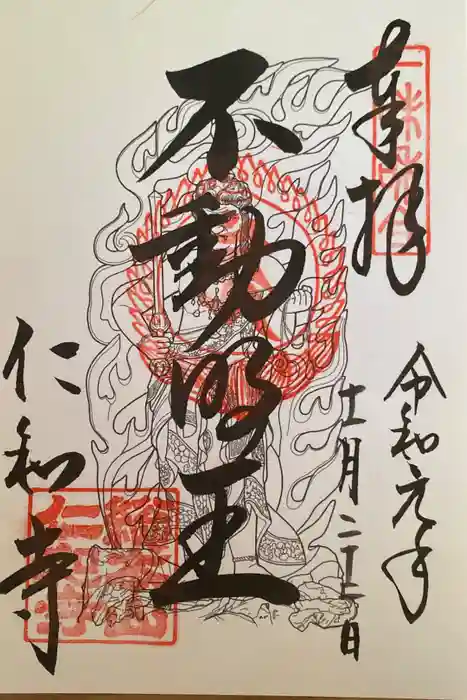 奉拝
令和元年
十一月二十三日
不動明王
仁和寺